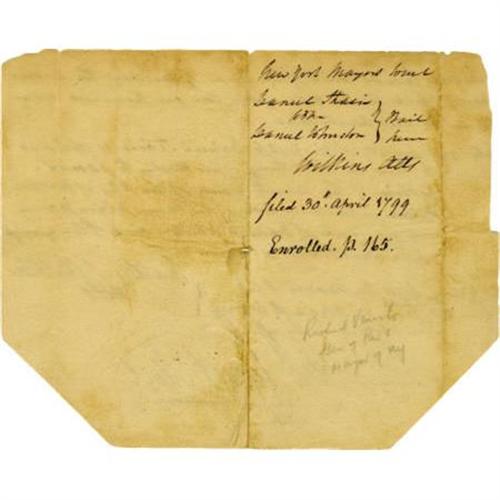 New York Mayors Court
Samuel
Samuel Johnston } Bail
Wilkins Atty
filed 30th April 1799
Enrolled. p. 165.
Richard Varick
Mayor of NY